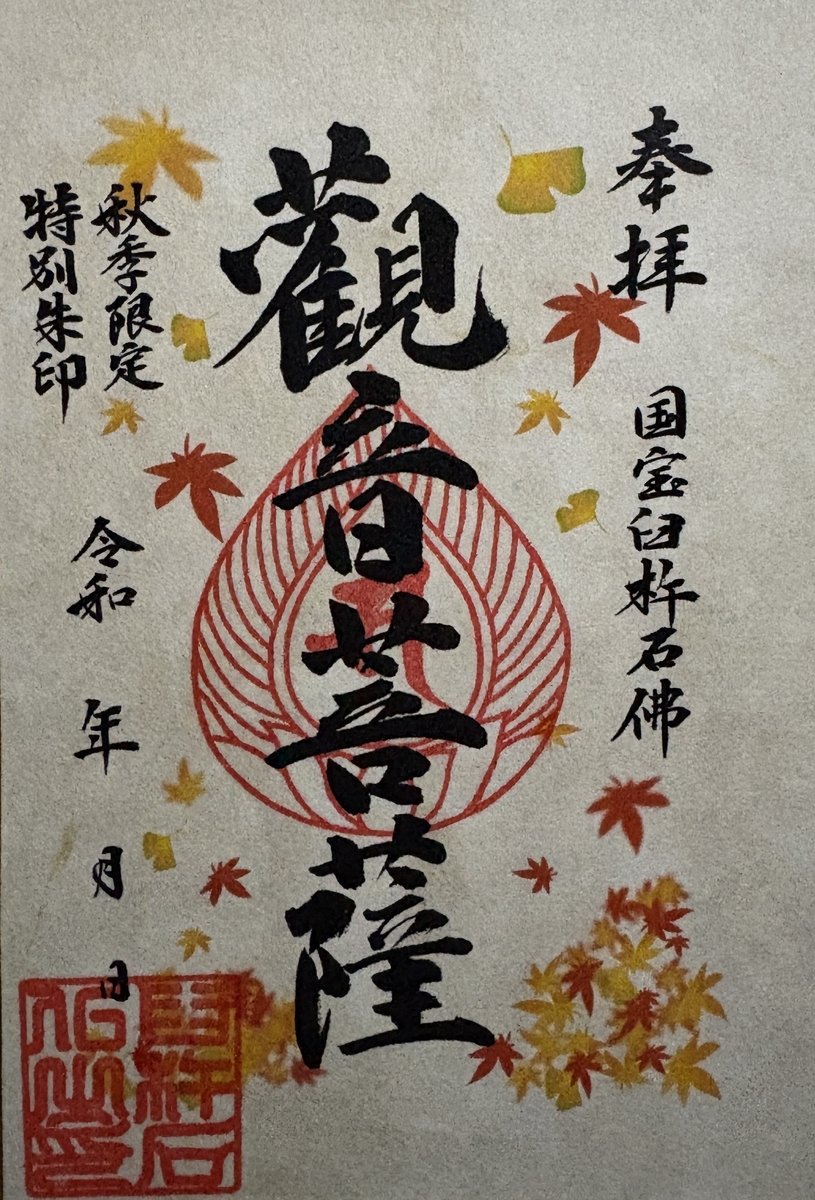 奉拝
国宝臼杵石佛
觀音菩薩
秋季限定
特別朱印
令和　年　月　日
臼杵石
仏之印